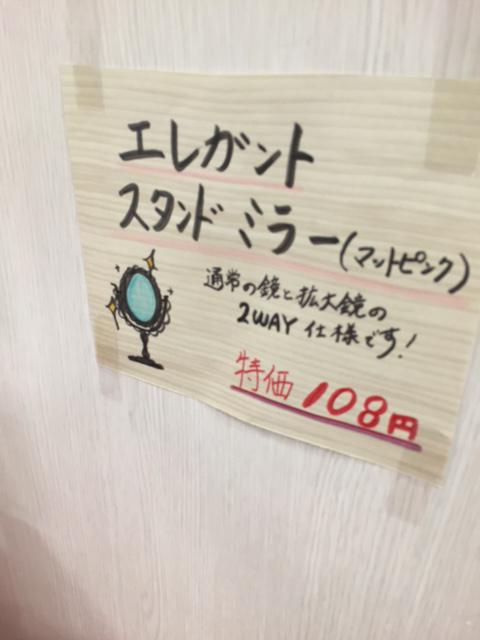 エレガント
スタンドミラー(マットピンク)
通常の鏡と拡大鏡の
2WAY仕様です!
特価 108円